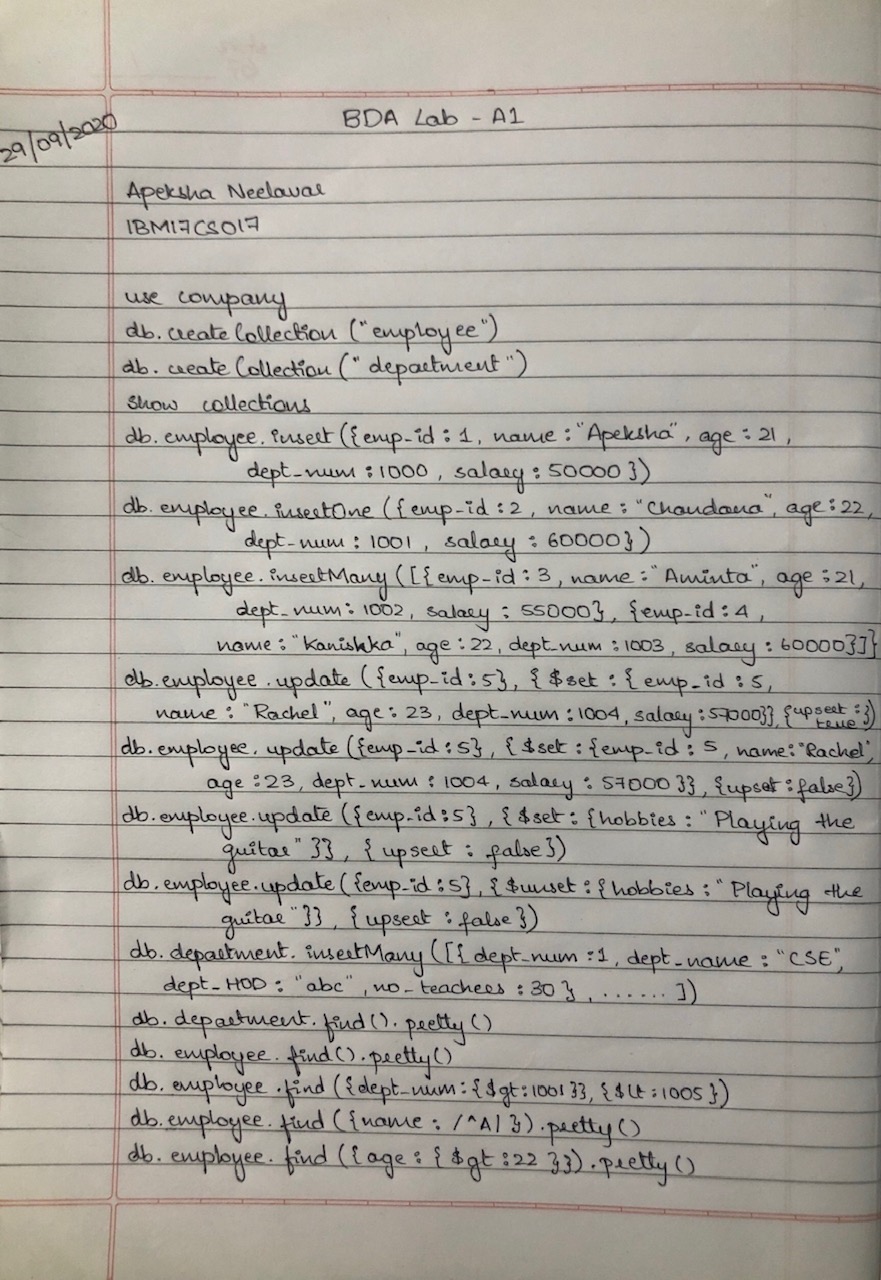 BDA Lab - A1
29/09/2020
Apeksha Neelavar
1BM17CS017
use company
db.createCollection ("employee")
db.createCollection ("department")
show collections
db.employee.insert ({emp-id : 1, name : "Apeksha", age : 21,
dept-num : 1000, salary : 50000})
db.employee.insertOne ({emp-id : 2, name : "Chandana", age : 22,
dept-num : 1001, salary : 60000})
db.employee.insertMany ([{emp-id : 3, name : "Aminta", age : 21,
dept_num : 1002, salary : 55000}, {emp-id : 4,
name : "Kanishka", age : 22, dept-num : 1003, salary : 60000}]}
db.employee.update ({emp-id : 5}, {$set : {emp-id : 5,
name : "Rachel", age : 23, dept-num : 1004, salary : 57000}}, {upsert : true})
db.employee.update ({emp-id : 5}, {$set : {emp-id : 5, name : "Rachel",
age : 23, dept-num : 1004, salary : 57000}}, {upset : false})
db.employee.update ({emp-id : 5}, {$set : {hobbies : "Playing the
guitar"}}, {upsert : false})
db.employee.update ({emp-id : 5}, {$unset : {hobbies : "Playing the
guitar"}}, {upsert : false})
db.department.insertMany ([{dept-num : 1, dept_name : "CSE",
dept-HOD : "abc", no-teachers : 30}, ....... ])
db.department.find().pretty()
db.employee.find().pretty()
db.employee.find ({dept-num : {$gt : 1001}}, {$lt : 1005})
db.employee.find ({name : /^A/}).pretty()
db.employee.find ({age : {$gt : 22}}).pretty()